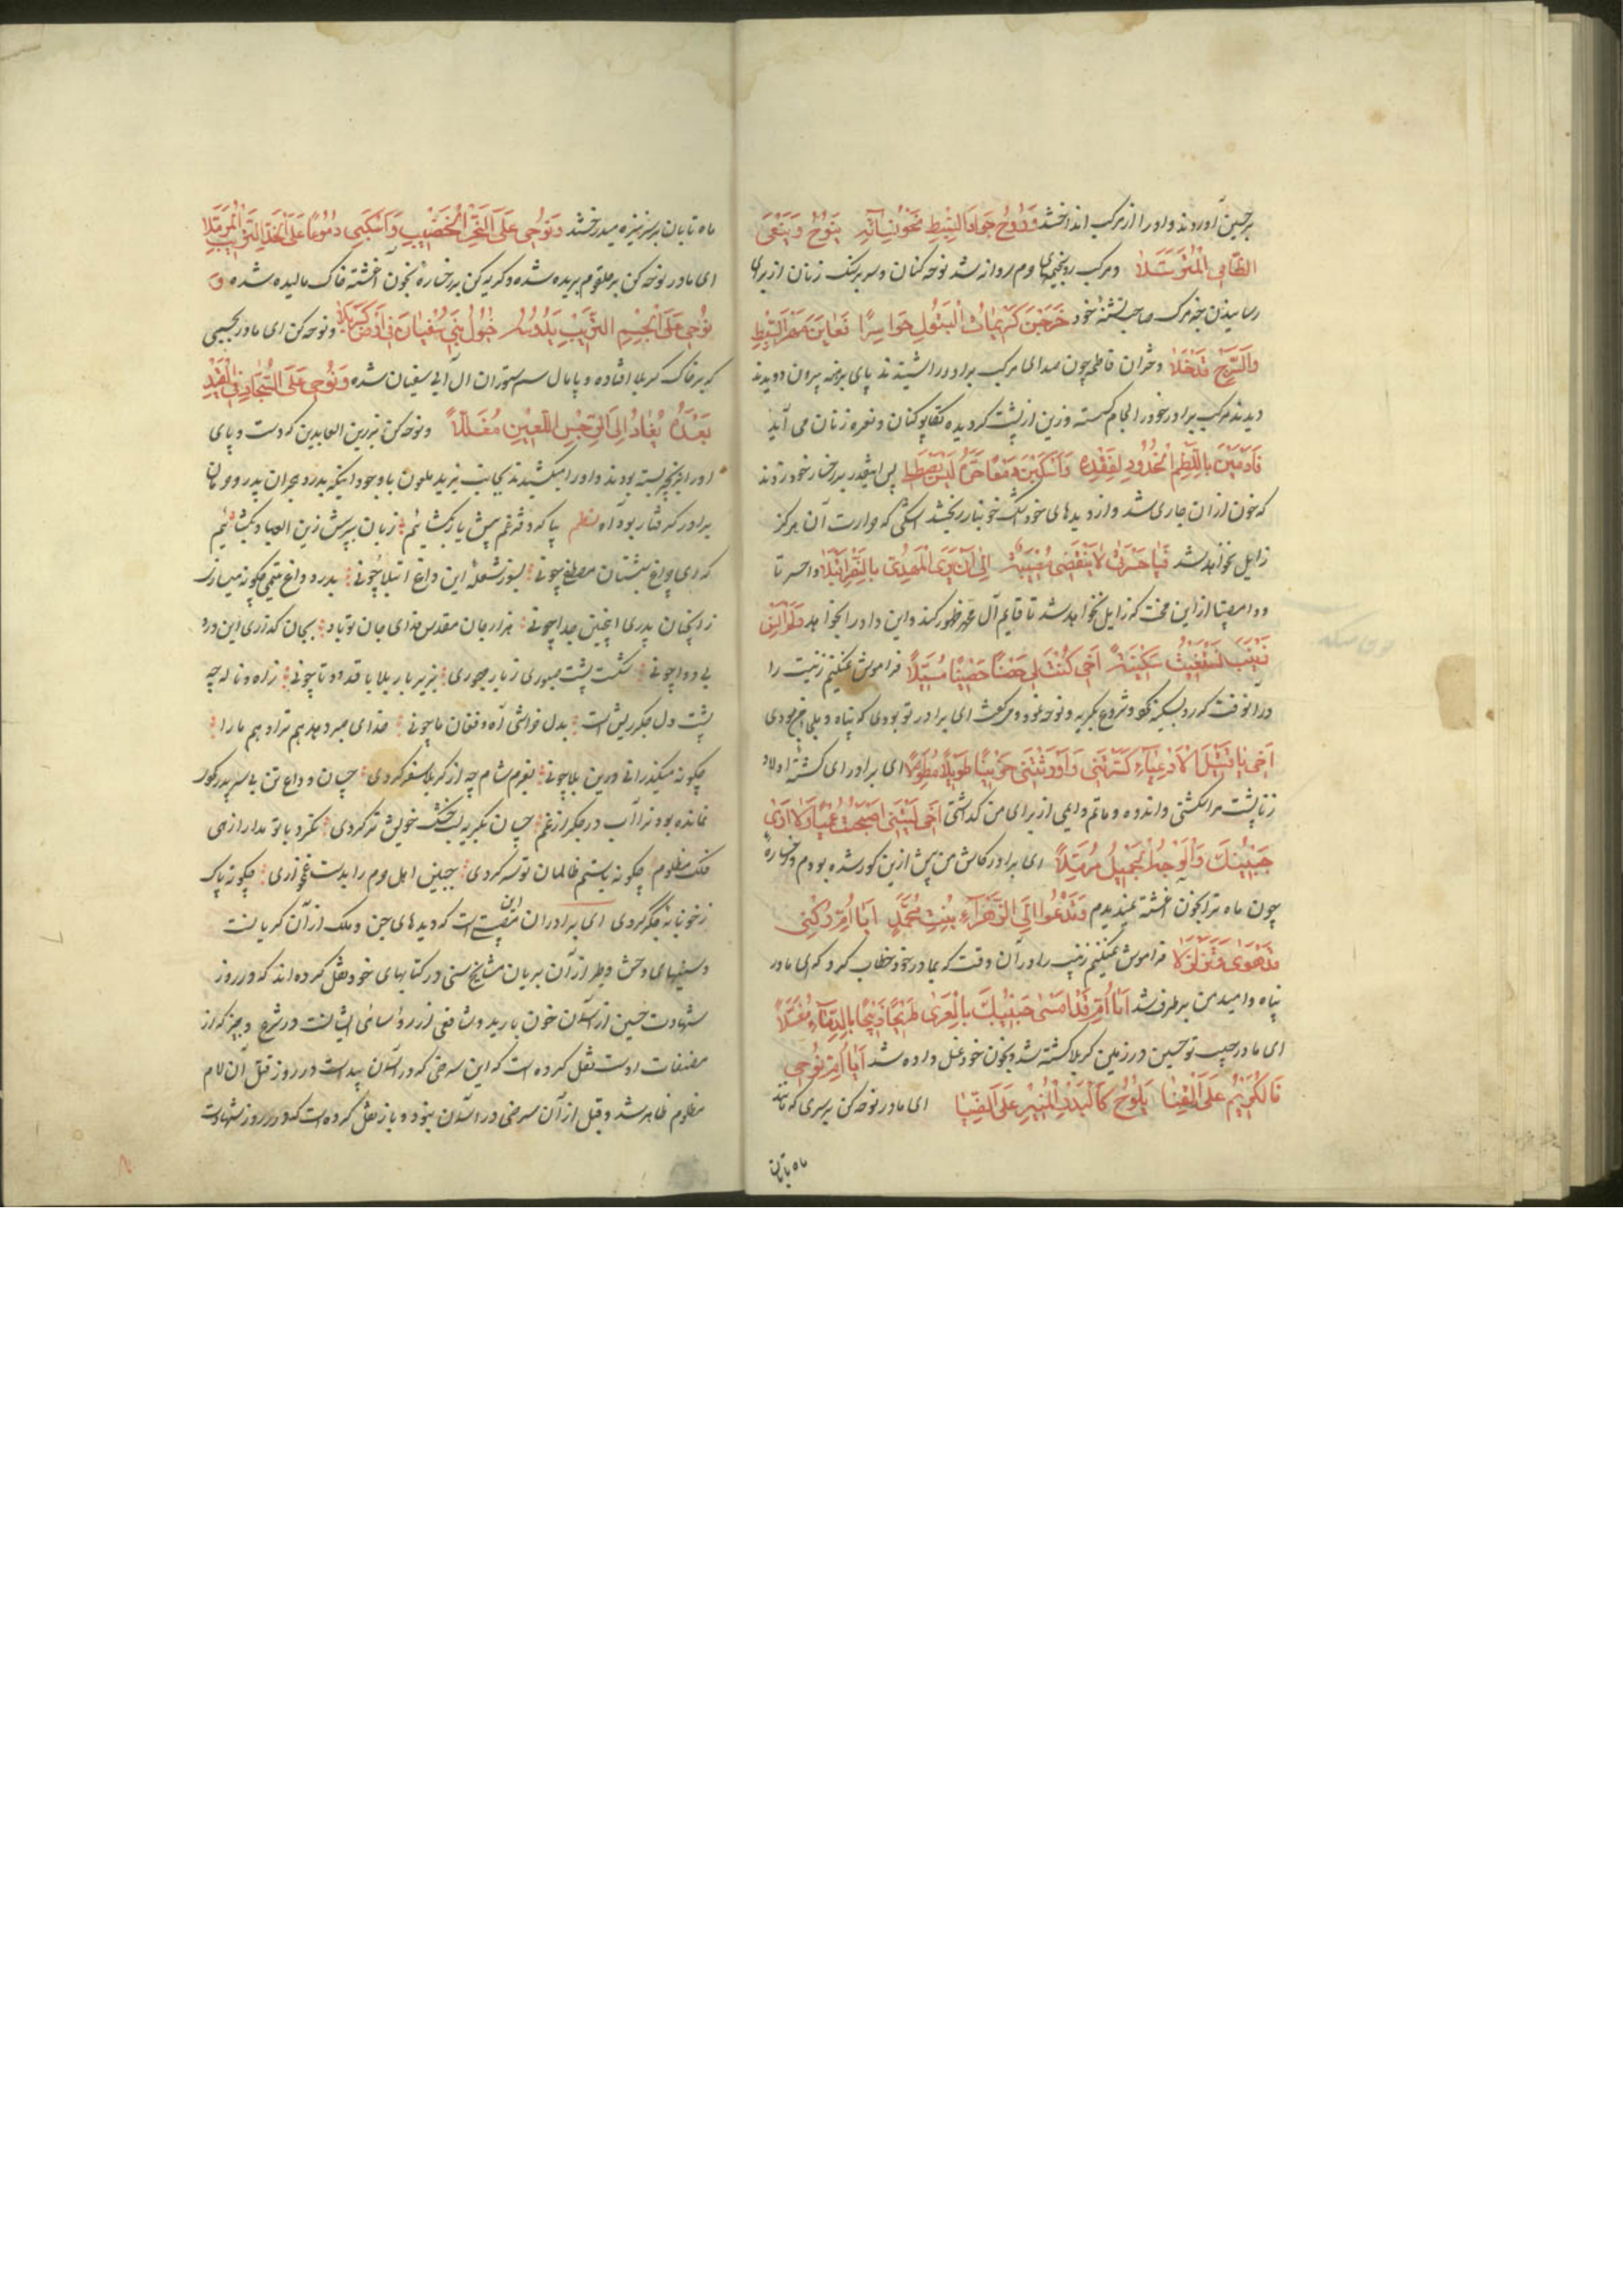 بر حسین آوردند و او را از مرکب انداختند وَرُوحُ جَوادِ السِّبطِ نَحوَ نِسائِهِ یَنُوحُ وَیَنعَی
الظّامِی المُتَرَمِّلا و مرکب رو بخیمهای حرم روانه شد نوحه کنان و سر بر سنگ زنان از برای
رسانیدن خبر مرک صاحب تشنه خود خَرَجنَ کَریماتُ البَتُولِ حَواسِرًا فَعایَنَّ مُهرَ السِّبطِ
وَالسَّرجُ قَد خَلا دختران فاطمه چون صدای مرکب برادر را شنیدند پای برهنه بیرون دویدند
دیدند مرکب برادر خود را لجام کسسته و زین از پشت کردیده تکاپو کنان و نعره زنان می آید
فَأَدمَینَ بِاللَّطمِ الخُدُودَ لِفَقدِهِ وَأَسکَبنَ دَمعًا حَرُّهُ لَیسَ یُصطَلی پس اینقدر بر رخسار خود زدند
که خون از آن جاری شد و از دیدهای خود اشک خونبار ریختند اشکی که حرارت آن هرکز
زایل نخواهد شد فَیا حَسرَتی لا تَنقَضِی وَمُصِیبَتِی إِلی أَن یَرَی المَهدِیَّ بِالنَّصرِ أَقبَلا واحسرتا
و وامصیبتا از این محنت که زایل نخواهد شد تا قایم آل محمد ظهور کند و این داد را بخواهد وَلَم أَنسَ
زَینَبَ تَستَغِیثُ سَکِینَةُ أَخِی کُنتَ لِی حِصنًا حَصِینًا مُسَبَّلًا فراموش نمیکنم زینب را
در آنوقت که رو بسکینه کرد و شروع بکریه و نوحه نمود و میکفت ای برادر تو بودی که پناه و ملجاء من بودی
أَخِی یا قَتِیلَ الأَدعِیاءِ کَسَرتَنِی وَأَورَثتَنِی حُزنًا طَوِیلًا مُطَوَّلا ای برادر ای کشته اولاد
زنا پشت مرا شکستی و اندوه و ماتم دایمی از برای من گذاشتی أَخِی لَیتَنِی أَصبَحتُ عُمیًا وَلا أَرَی
جَبِینَکَ وَالوَجهَ الجَمِیلَ مُرَمَّلًا ای برادر کاش من پیش ازین کور شده بودم و رخساره
چون ماه ترا بخون آغشته نمیدیدم وَتَدعُو إِلَی الزَّهراءِ بِنتِ مُحَمَّدٍ أَیا أُمِّ رُکنِی
قَد هَوی وَتَزَلزَلا فراموش نمیکنم زینب را در آن وقت که بمادر خود خطاب کرد که ای مادر
پناه و امید من بر طرف شد أَیا أُمِّ قَد أَمسَی حَبِیبُکِ بِالعَرَی طَرِیحًا ذَبِیحًا بِالدِّماءِ مُغَسَّلًا
ای مادر حبیب تو حسین در زمین کربلا کشته شد و بخون خود غسل داده شد أَیا أُمِّ نُوحِی
فَالکَرِیمُ عَلَی القَنا یَلُوحُ کَالبَدرِ المُنِیرِ عَلَی القَنا ای مادر نوحه کن بر سری که مانند
ماه تابان
ماه تابان بر سر نیزه میدرخشد وَنُوحِی عَلَی النَّحرِ الخَضِیبِ وَاسکُبِی دُمُوعًا عَلَی الخَدِّ التَّرِیبِ المُرَمَّلا
ای مادر نوحه کن بر حلقوم بریده شده و کریه کن بر رخساره بخون آغشته خاک مالیده شده وَ
نُوحِی عَلَی الجِسمِ التَّرِیبِ تَدُوسُهُ خُیُولُ بَنِی سُفیانَ فِی أَرضِ کَربَلا و نوحه کن ای مادر بجسمی
که بر خاک کربلا افتاده و پامال سم ستوران آل ابی سفیان شده وَنُوحِی عَلَی السَّجّادِ فِی القَیدِ
بَعدَهُ یُقادُ إِلَی الرِّجسِ اللَّعِینِ مُغَلَّلًا و نوحه کن بزین العابدین که دست و پای
او را بزنجیر بسته بودند و او را میکشیدند بجانب یزید ملعون با وجود اینکه بدرد هجران پدر و حرمان
برادر گرفتار بود آه نظم بیا که دفتر غم پیش یار بکشائیم زبان بپرسش زین العباد بکشائیم
که ای چراغ شبستان مصطفی چونی بسوز شعله این داغ ابتلا چونی بدرد داغ یتیمی چکونه میسازی
ز آنچنان پدری اینچنین جدا چونی هزار جان مقدس فدای جان تو باد بجان کدازی این درد
بی دوا چونی شکست پشت صبوری ز بار مهجوری بزیر بار بلا با قد دوتا چونی ز آه و ناله چه
پشت دل جکر ریش است بدل خراشی آه و فغان ما چونی خدای صبر دهد هم ترا و هم ما را
چکونه میکذرانی درین بلا چونی بعزم شام چه از کربلا سفر کردی چسان وداع تن بی سر پدر کردی
نمانده بود ترا آب در جکر از غم چسان بکریه لب خشک خویش تر کردی نکرد با تو مدارا زهی
فلک مظلوم چکونه با ستم ظالمان تو سر کردی بجبین اهل حرم را بدست خونخواری چکونه پاک
ز خونابه جگر کردی ای برادران این مصیبتی است که دیدهای جن و ملک از آن کریانست
و سینهای وحش و طیر از آن بریان مشایخ سنی در کتابهای خود نقل کرده اند که در روز
شهادت حسین از آسمان خون بارید و شافعی از رؤسای ایشانست در شرح وجیز که از
مصنفات اوست نقل کرده است که این سرخی که در آسمان پیداست در روز قتل آن امام
مظلوم ظاهر شد و قبل از آن سرخی در آسمان نبود و باز نقل کرده است که در روز شهادت